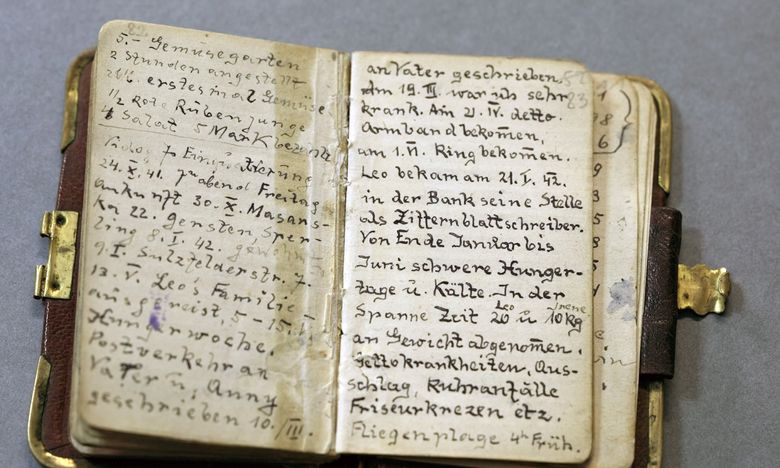 82.
5.- Gemüsegarten
2 Stunden angestellt
erstes mal Gemüse
1/2 Rote Rüben junge
4 Salat 5 Mark bezahlt
24. X. 41. abend Freitag
ankunft 30. X.
22. Gersten, Sper-
ling 8. I. 42.
9. I. Sulzfelderstr. 7.
13. V. Leo's Familie
ausgereist, 5-15. V
Hungerwoche.
Postverkehr an
Vater u. Anny
geschrieben 10. III.
an Vater geschrieben
Am 19. III. war ich sehr
krank. Am 21. IV. detto.
Armband bekomen,
am 1. VI. Ring bekomen.
Leo bekam am 21. V. 42.
in der Bank seine Stelle
als Zifternblattschreiber.
Von Ende Januar bis
Juni schwere Hunger-
tage u. Kälte. In der
Spanne Zeit Leo 20 u. Irene 10 kg
an Gewicht abgenomen.
Gettokrankheiten, Aus-
schlag, Ruhranfälle
Friseurkrezen etz.
Fliegenplage 4h Früh.